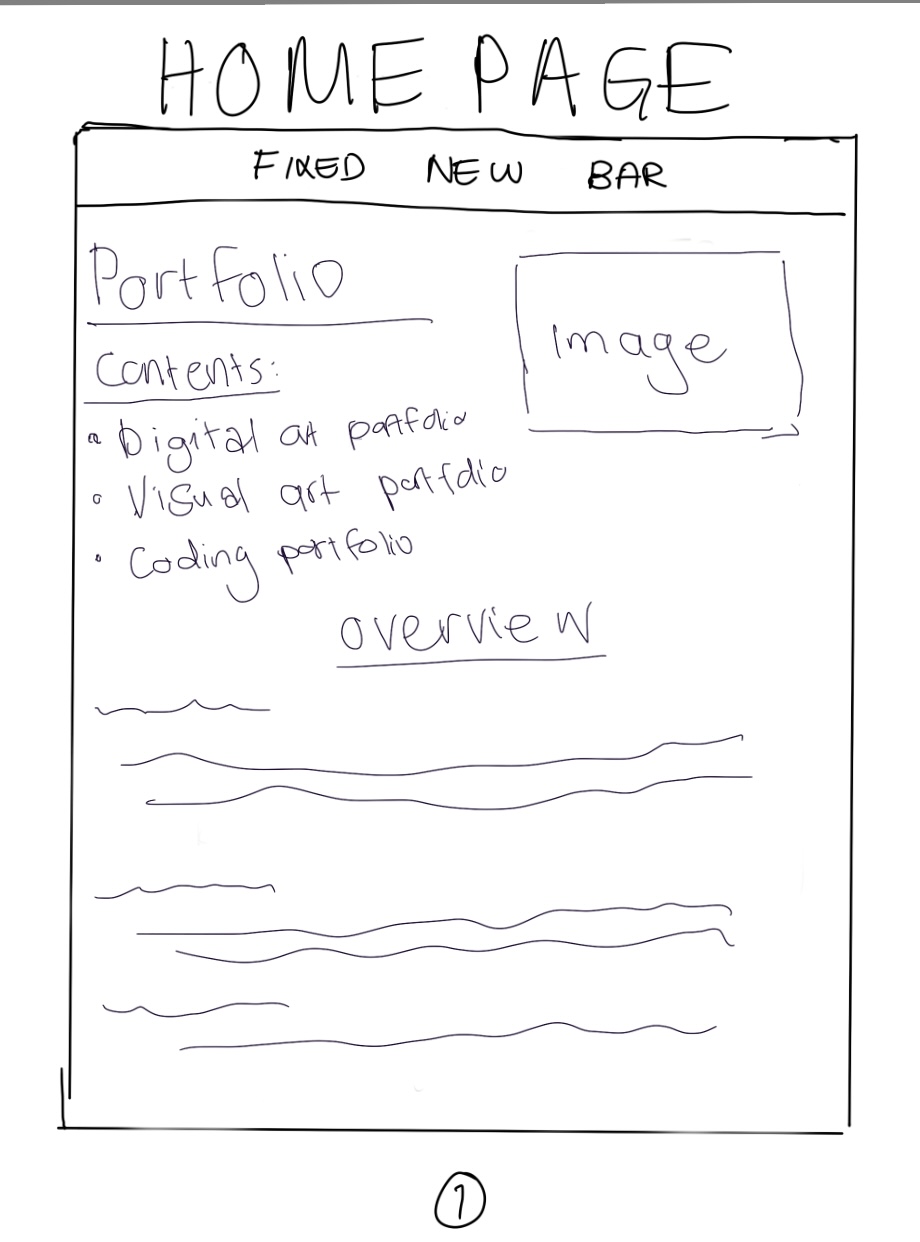 HOME PAGE
FIXED NEW BAR
Portfolio
Image
Contents:
Digital art portfolio
Visual art portfolio
Coding portfolio
overview
1